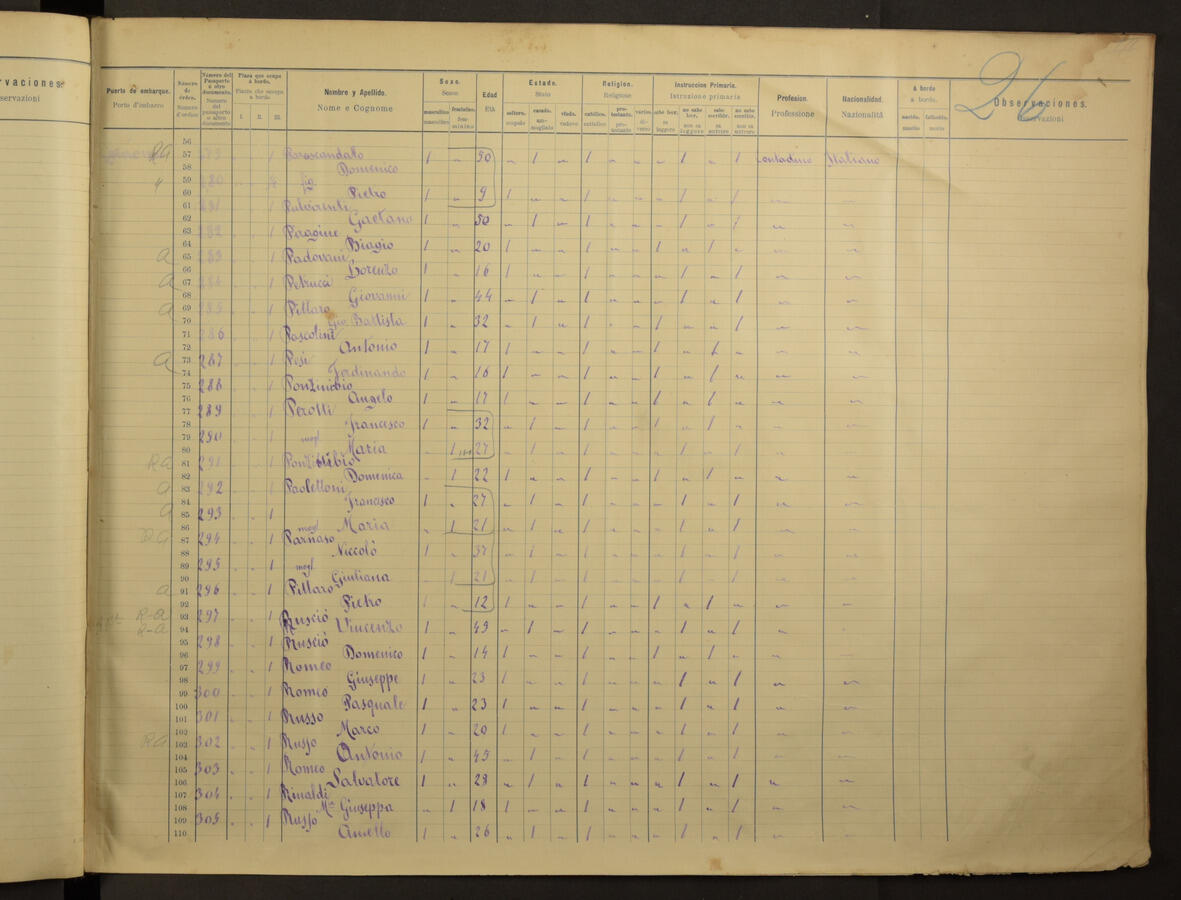 26
rvaciones.
servazioni
Puerto de embarque. Número de órden. Número del Pasaporto u otro documento. Plaza que ocupa á bordo. Nombre y Apellido. Sexo. Edad Estado. Religion. Instruccion Primaria. Profesion. Nacionalidad. á bordo Observaciones.
Porto d'imbarco Numero d'ordine Numero del Passaporto o altro documento Piazza che occupa a bordo Nome e Cognome Sesso Età Stato Religione Istruzione primaria Professione Nazionalità a bordo. Osservazioni
I. II. III. masculino femenino. soltero. casado. viudo. católico. protestante. varias. sabe leer. no sabe leer. sabe escribir. no sabe escribir. nacido. fallecido.
56
57 1 1 50 1 1 1 1 Contadino Italiano
58 Domenico
59 280 fig
60 Pietro 1 9 1 1 1 1
61 281 1 Pulvirenti
62 Gaetano 1 50 1 1 1 1
63 282 1
64 Biagio 1 20 1 1 1 1
65 a 283 1 Padovani
66 Lorenzo 1 16 1 1 1 1
67 a 284 1 Petrucci
68 Giovanni 1 44 1 1 1 1
69 a 285 1 Pillaro
70 Gio Battista 1 32 1 1 1 1
71 286 1 Pascolini
72 Antonio 1 17 1 1 1 1
73 a 287 1 Pesi
74 Ferdinando 1 16 1 1 1 1
75 288 1
76 Angelo 1 17 1 1 1 1
77 289 1 Perotti
78 Francesco 1 32 1 1 1 1
79 290 1 mogl
80 Maria 1 27 1 1 1 1
81 Ra 291 1
82 Domenica 1 22 1 1 1 1
83 a 292 1 Paolettoni
84 Francesco 1 27 1 1 1 1
85 a 293 1
86 mogl Maria 1 21 1 1 1 1
87 Ra 294 1 Parnaso
88 Niccolò 1 37 1 1 1 1
89 295 1 mogl
90 Giuliana 1 21 1 1 1 1
91 a 296 1 Pillaro
92 Pietro 1 12 1 1 1 1
93 R-a 297 1 Rusció
94 R-a Vincenzo 1 49 1 1 1 1
95 298 1 Rusció
96 Domenico 1 14 1 1 1 1
97 299 1 Romeo
98 Giuseppe 1 23 1 1 1 1
99 300 1 Romeo
100 Pasquale 1 23 1 1 1 1
101 301 1 Russo
102 Marco 1 20 1 1 1 1
103 Ra 302 1 Russo
104 Antonio 1 45 1 1 1 1
105 303 1 Romeo
106 Salvatore 1 28 1 1 1 1
107 304 1 Rinaldi
108 Ma Giuseppa 1 18 1 1 1 1
109 305 1 Russo
110 Aniello 1 26 1 1 1 1